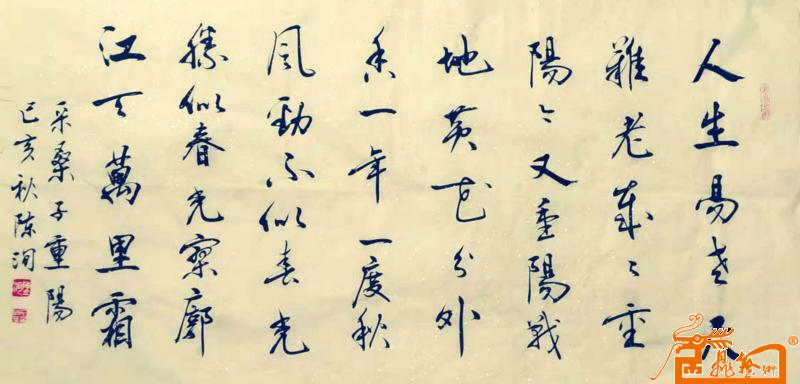 人生易老天
難老歲々重
陽今又重陽戰
地黄花分外
香一年一度秋
風勁不似春光
勝似春光寥廓
江天萬里霜
采桑子重陽
己亥秋陈洵